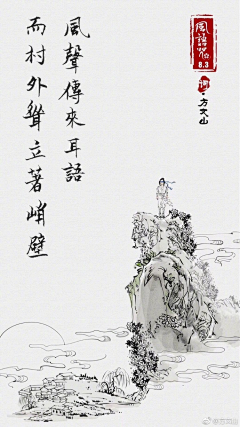 風聲傳來耳語
而村外聳立著峭壁
風語咒
8.3
詞·方文山
@方文山